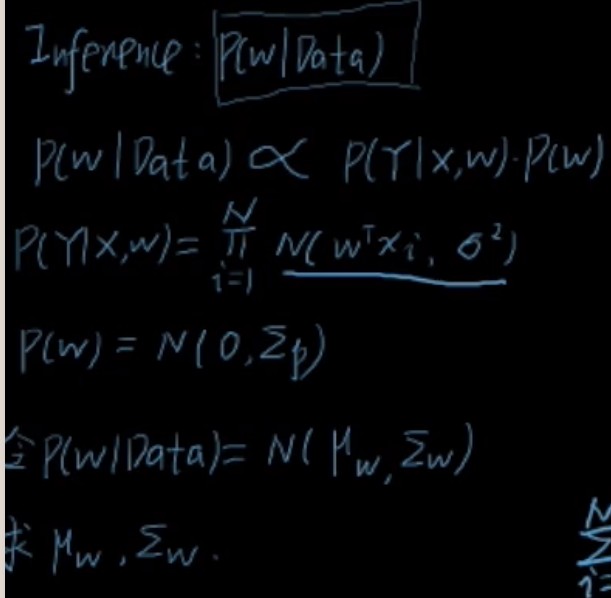 Inference: P(w|Data)
P(w|Data) ∝ P(Y|X,w)·P(w)
P(Y|X,w)= N ∏ i=1 N(wᵀxᵢ, σ²)
P(w) = N(0,Σp)
令P(w|Data)= N(μw,Σw)
求 μw,Σw.
N Σ i=